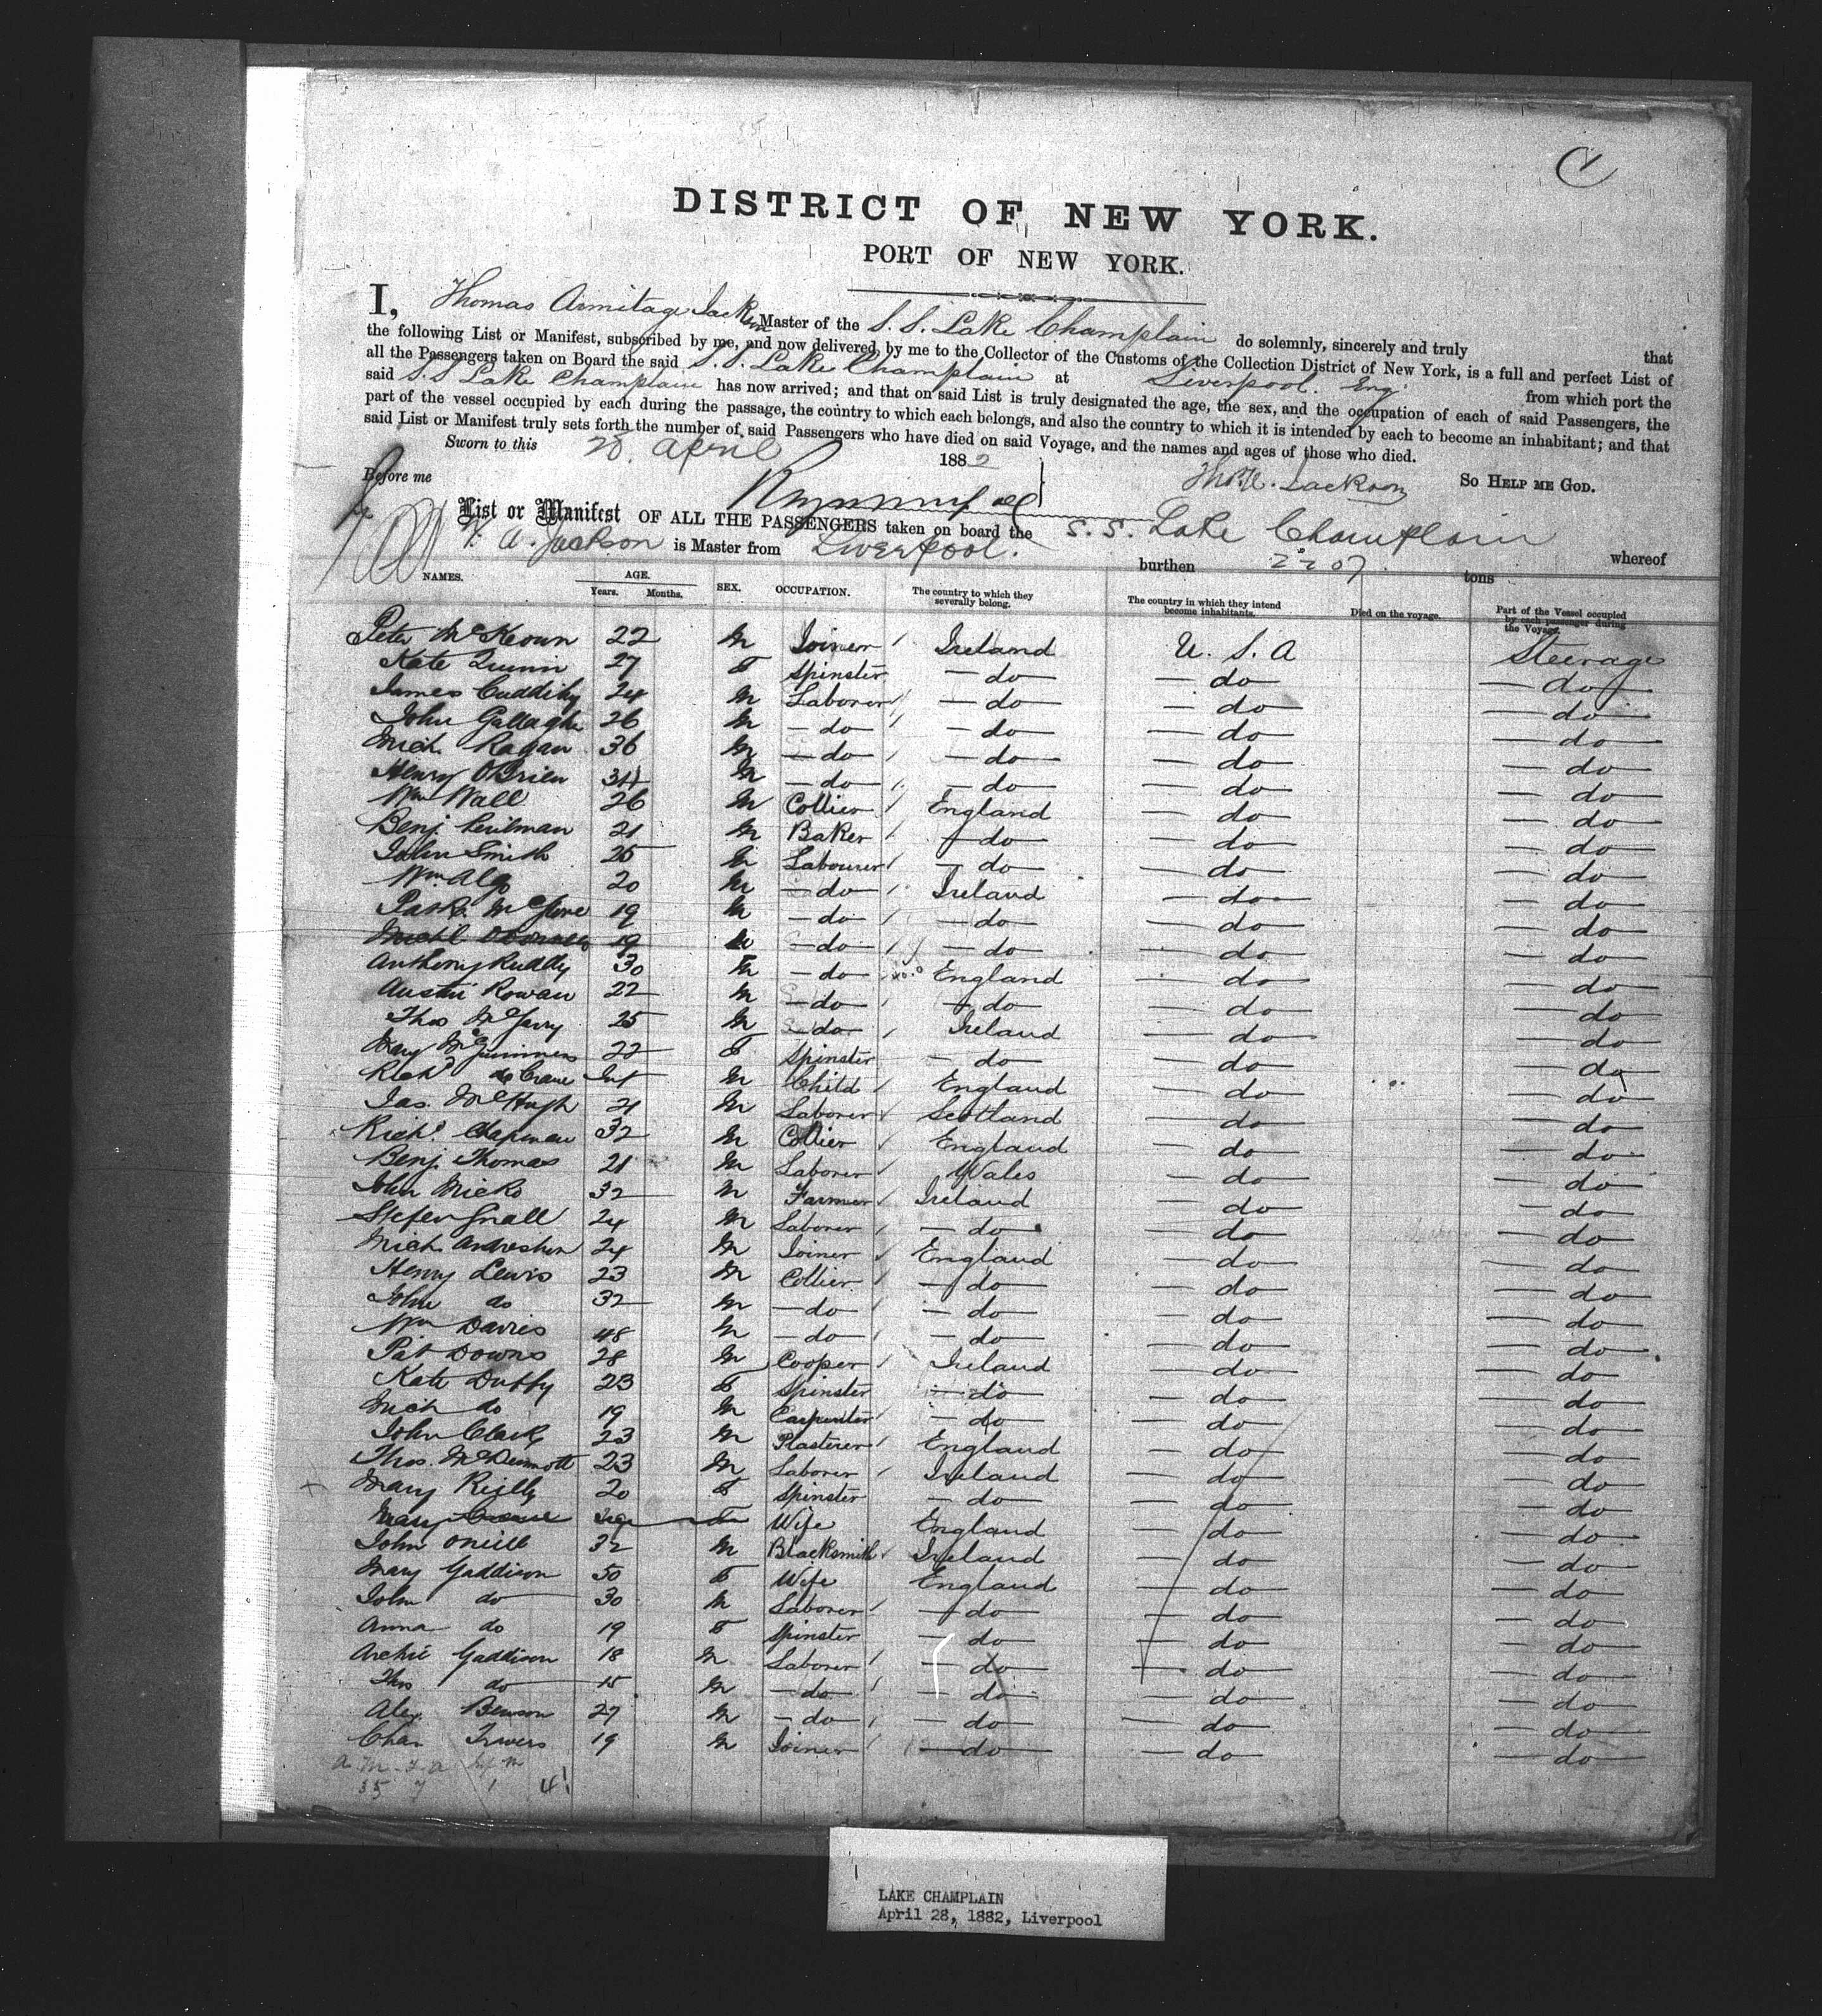 DISTRICT OF NEW YORK.
PORT OF NEW YORK.
I, Thomas Armitage Jackson Master of the S. S. Lake Champlain do solemnly, sincerely and truly that
the following List or Manifest, subscribed by me, and now delivered by me to the Collector of the Customs of the Collection District of New York, is a full and perfect List of
all the Passengers taken on Board the said S. S. Lake Champlain at Liverpool. Eng. from which port the
said S.S Lake Champlain has now arrived; and that on said List is truly designated the age, the sex, and the occupation of each of said Passengers, the
part of the vessel occupied by each during the passage, the country to which each belongs, and also the country to which it is intended by each to become an inhabitant; and that
said List or Manifest truly sets forth the number of said Passengers who have died on said Voyage, and the names and ages of those who died.
Sworn to this 28 April 1882 So HELP ME GOD.
Before me Jackson
List or Manifest OF ALL THE PASSENGERS taken on board the S. S. Lake Champlain whereof
A. Jackson is Master from Liverpool. burthen 2207 tons
NAMES. AGE. Years. Months. SEX. OCCUPATION. The country to which they severally belong. The country in which they intend become inhabitants. Died on the voyage. Part of the Vessel occupied by each passenger during the Voyage.
Peter McKeown 22 M Joiner Ireland U. S. A Steerage
Kate Quinn 27 F Spinster do do do
James Cuddihy 24 M Laborer do do do
John Gallagher 26 M do do do do
Mich. Ragan 36 M do do do do
Henry OBrien 34 M do do do do
Wm Wall 26 M Collier England do do
Benj. 21 M Baker do do do
John Smith 25 M Labourer do do do
Wm. Algo 20 M do Ireland do do
Patk. 19 M do do do do
Michl. 19 M do do do do
Anthony Ruddy 30 M do England do do
Austin Rowan 22 M do do do do
Thos McGarry 25 M do Ireland do do
Mary 22 F Spinster do do do
Richd Crane Inf M Child England do do
Jas. McHugh 21 M Laborer Scotland do do
Richd. Chapman 32 M Collier England do do
Benj. Thomas 21 M Laborer Wales do do
John Nicks 32 M Farmer Ireland do do
24 M Laborer do do do
Mich. 24 M Joiner England do do
Henry Lewis 23 M Collier do do do
John do 32 M do do do do
Wm Davies 48 M do do do do
Pat Downs 28 M Cooper Ireland do do
Kate Duffy 23 F Spinster do do do
Mich do 19 M Carpenter do do do
John Clark 23 M Plasterer England do do
Thos. McDermott 23 M Laborer Ireland do do
Mary Reilly 20 F Spinster do do do
Mary F Wife England do do
John ONeill 32 M Blacksmith Ireland do do
Mary Gaddison 50 F Wife England do do
John do 30 M Laborer do do do
Anna do 19 F Spinster do do do
Archie Gaddison 18 M Laborer do do do
Thos do 15 M do do do do
Alex. Benson 27 M do do do do
Chas 19 M Joiner do do do
35 7 1 41
LAKE CHAMPLAIN
April 28, 1882, Liverpool